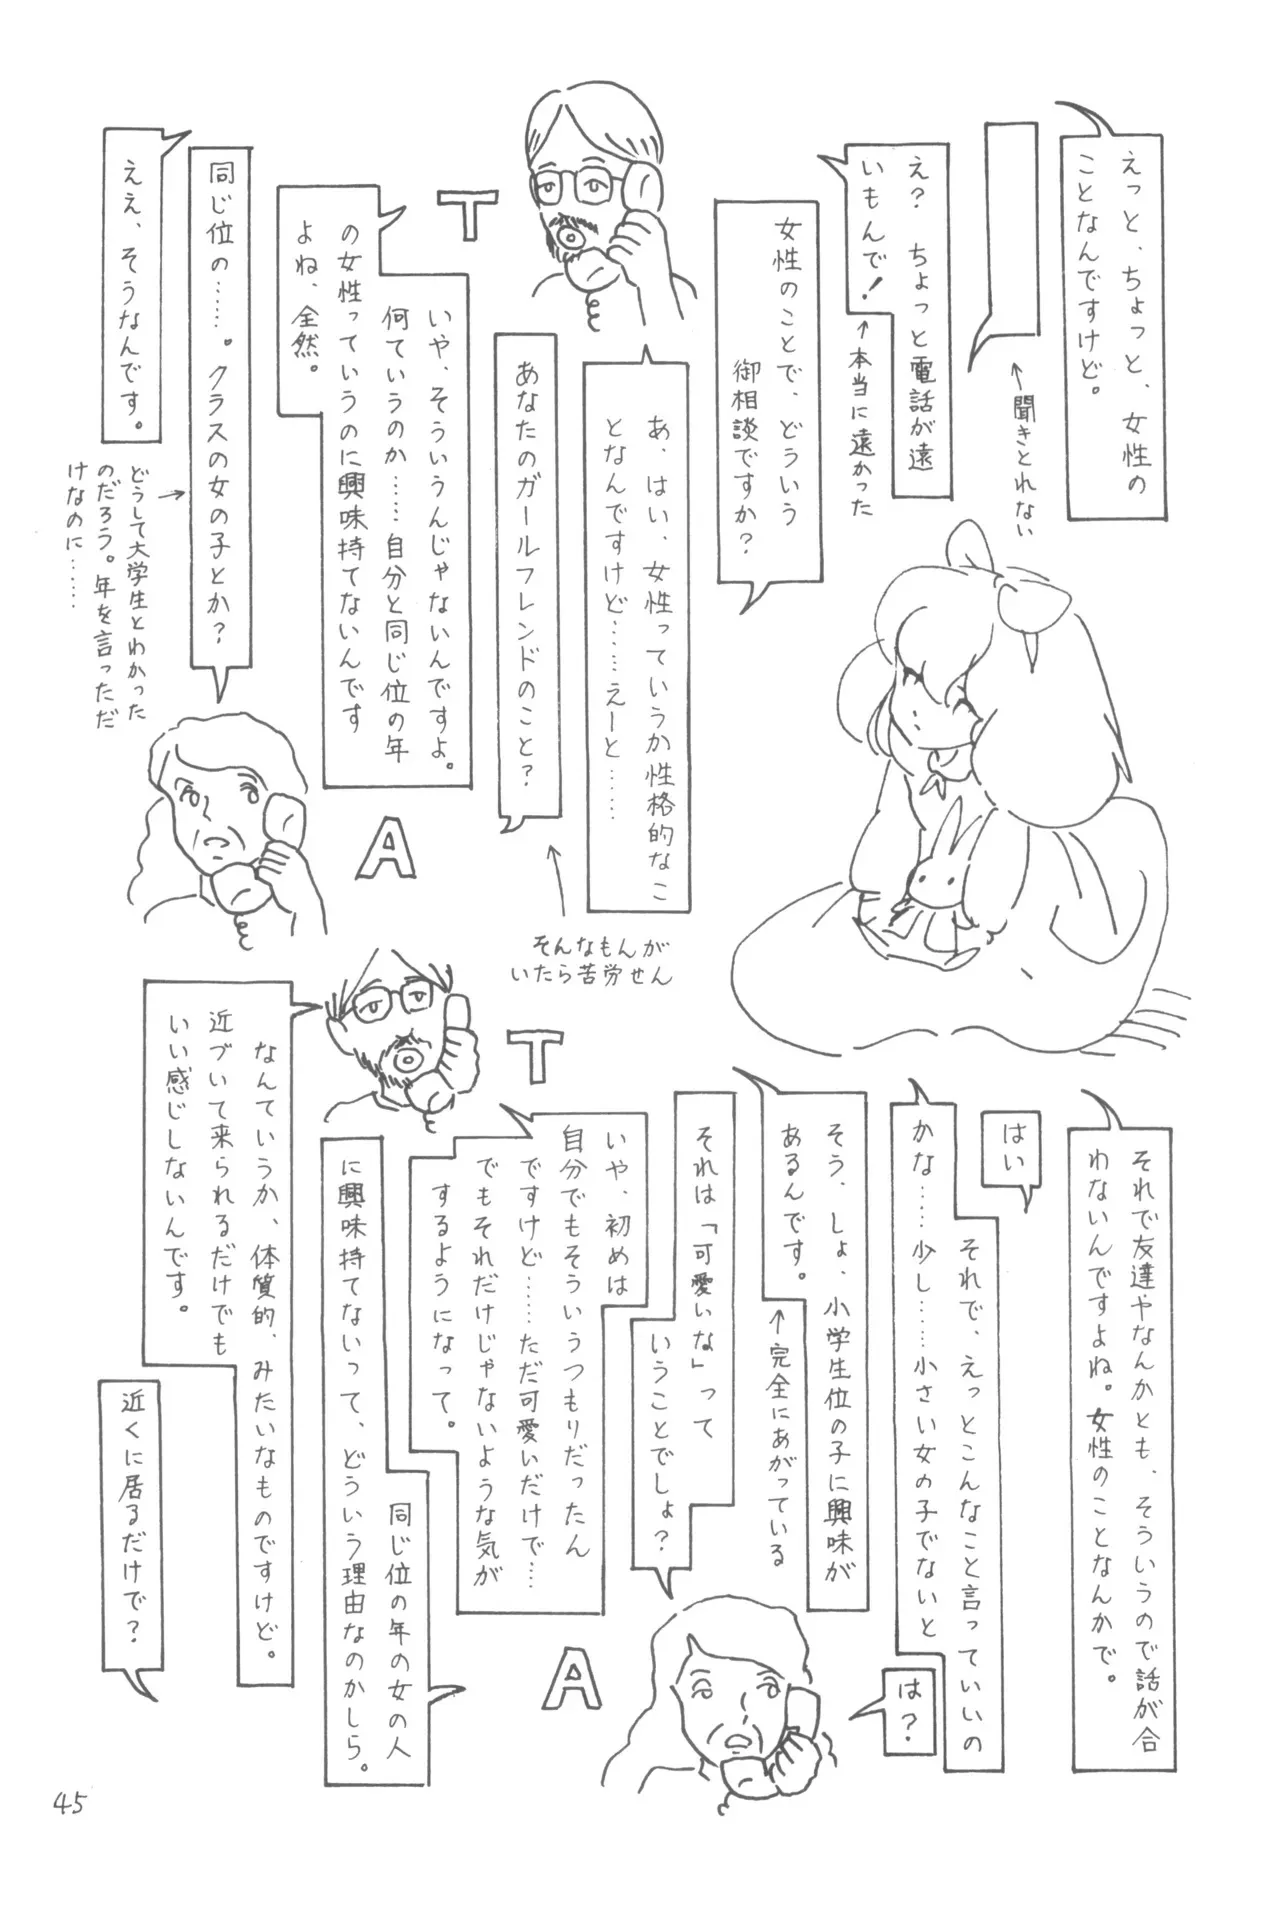 えっと、ちょっと、女性の
ことなんですけど。
↑聞きとれない
え？　ちょっと電話が遠
いもんで！
↑本当に遠かった
女性のことで、どういう
御相談ですか？
あ、はい、女性っていうか性格的なこ
となんですけど……えーと……
T
あなたのガールフレンドのこと？
↑
そんなもんが
いたら苦労せん
いや、そういうんじゃないんですよ。
何ていうのか……自分と同じ位の年
の女性っていうのに興味持てないんです
よね、全然。
同じ位の……。クラスの女の子とか？
A
ええ、そうなんです。
→
どうして大学生とわかった
のだろう。年を言っただ
けなのに……
それで友達やなんかとも、そういうので話が合
わないんですよね。女性のことなんかで。
はい
それで、えっとこんなこと言っていいの
かな……少し……小さい女の子でないと
は？
そう、しょ、小学生位の子に興味が
あるんです。
↑完全にあがっている
それは「可愛いな」って
いうことでしょ？
A
いや、初めは
自分でもそういうつもりだったん
ですけど……ただ可愛いだけで…
でもそれだけじゃないような気が
するようになって。
T
同じ位の年の女の人
に興味持てないって、どういう理由なのかしら。
なんていうか、体質的、みたいなものですけど。
近づいて来られるだけでも
いい感じしないんです。
近くに居るだけで？
45